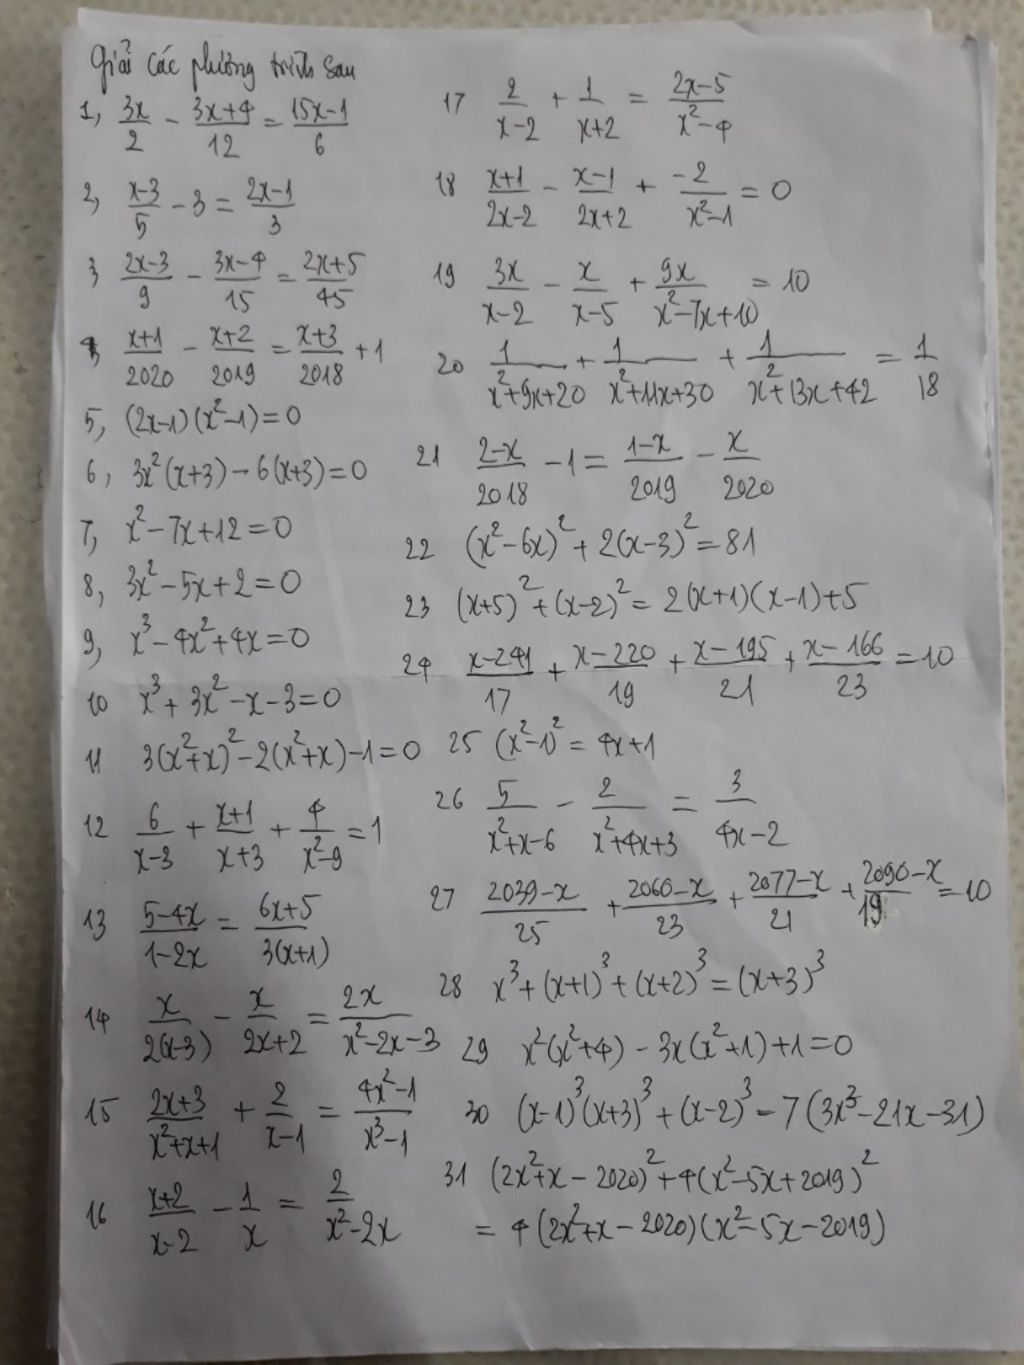 Giải các phương trình sau
1, 3x/2 - 3x+4/12 = 15x-1/6
2, x-3/5 - 3 = 2x-1/3
3 2x-3/9 - 3x-4/15 = 2x+5/45
4, x+1/2020 - x+2/2019 = x+3/2018 + 1
5, (2x-1)(x²-1)=0
6, 3x²(x+3)-6(x+3)=0
7, x²-7x+12=0
8, 3x²-5x+2=0
9, x³-4x²+4x=0
10 x³+3x²-x-3=0
11 3(x²+x)²-2(x²+x)-1=0
12 6/x-3 + x+1/x+3 + 4/x²-9 = 1
13 5-4x/1-2x = 6x+5/3(x+1)
14 x/2(x-3) - x/2x+2 = 2x/x²-2x-3
15 2x+3/x²+x+1 + 2/x-1 = 4x²-1/x³-1
16 x+2/x-2 - 1/x = 2/x²-2x
17 2/x-2 + 1/x+2 = 2x-5/x²-4
18 x+1/2x-2 - x-1/2x+2 + -2/x²-1 = 0
19 3x/x-2 - x/x-5 + 9x/x²-7x+10 = 10
20 1/x²+9x+20 + 1/x²+11x+30 + 1/x²+13x+42 = 1/18
21 2-x/2018 - 1 = 1-x/2019 - x/2020
22 (x²-6x)²+2(x-3)²=81
23 (x+5)²+(x-2)²=2(x+1)(x-1)+5
24 x-241/17 + x-220/19 + x-195/21 + x-166/23 = 10
25 (x²-1)²=4x+1
26 5/x²+x-6 - 2/x²+4x+3 = 3/4x-2
27 2039-x/25 + 2060-x/23 + 2077-x/21 + 2090-x/19 = 10
28 x³+(x+1)³+(x+2)³=(x+3)³
29 x²(x²+4)-3x(x²+1)+1=0
30 (x-1)³(x+3)³+(x-2)³-7(3x³-21x-31)
31 (2x²+x-2020)²+4(x²-5x+2019)²
= 4(2x²+x-2020)(x²-5x-2019)